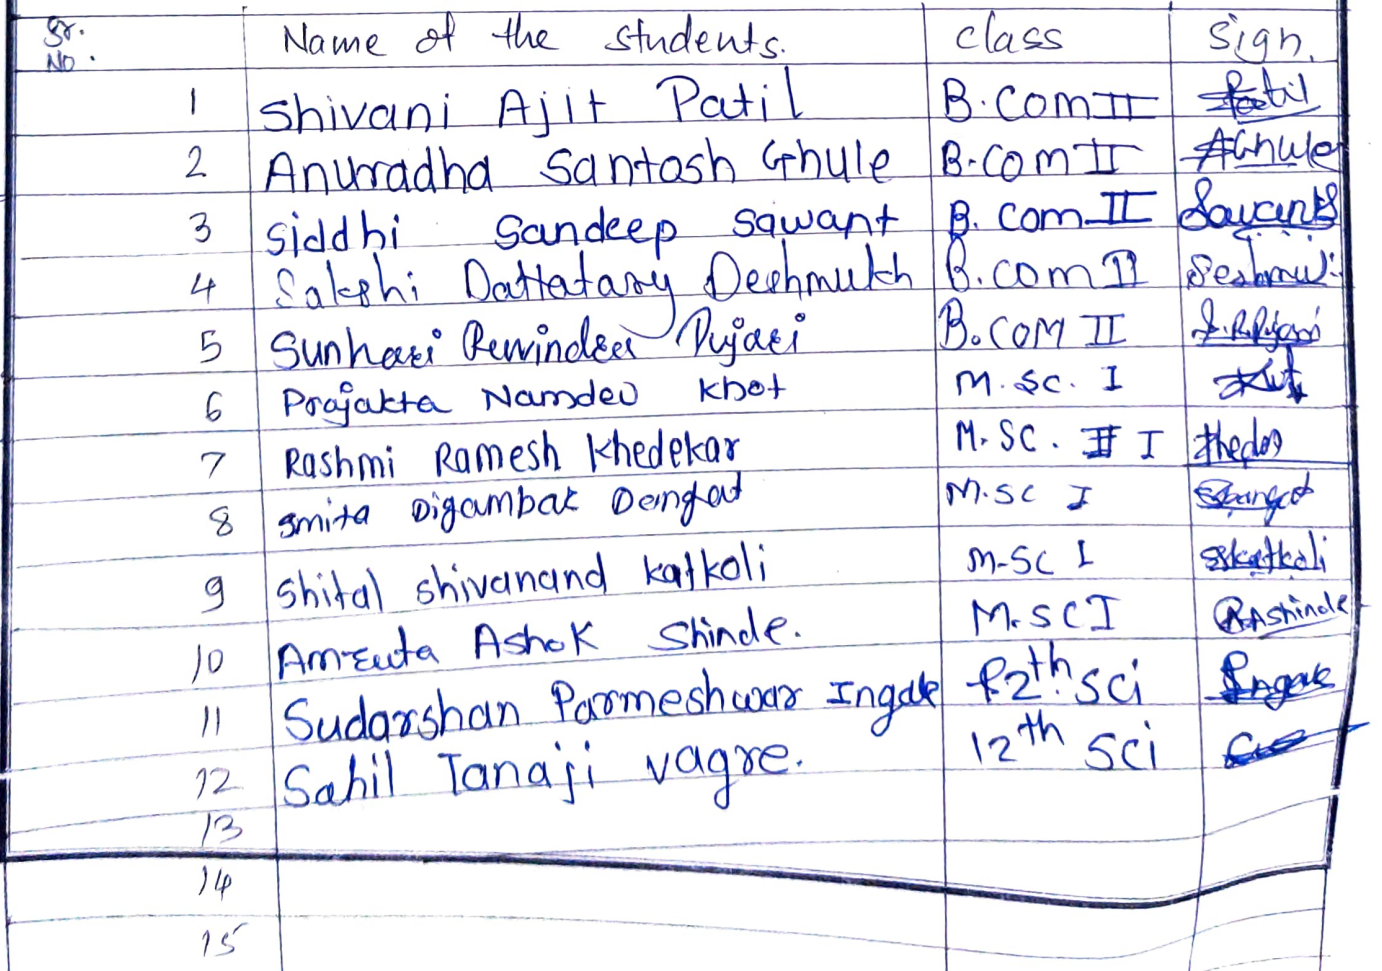 Sr. No. Name of the students. class Sign.
1 Shivani Ajit Patil B.Com II Patil
2 Anuradha Santosh Ghule B.Com II AGhule
3 Siddhi Sandeep Sawant B. Com II
4 Sakshi Dattatary Deshmukh B.com II
5 Sunhari Pujari B.COM II
6 Prajakta Namdev Khot M.Sc. I
7 Rashmi Ramesh Khedekar M.SC. I
8 Smita Digambar M.sc I
9 Shital shivanand katkoli M-SC I skatkoli
10 Amruta Ashok Shinde. M.SC I AAshinde
11 Sudarshan Parmeshwar Ingale 12th sci Ingale
12 Sahil Tanaji vagre. 12th Sci
13
14
15